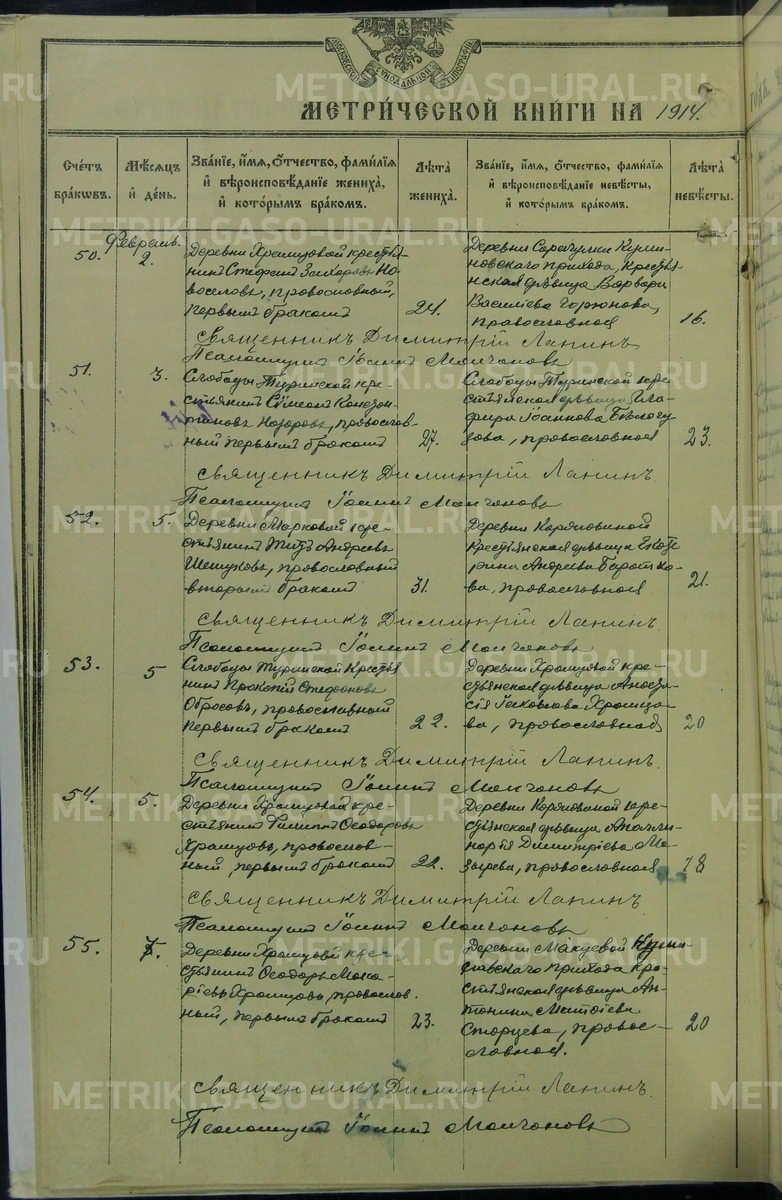 МОСКОВСКОЙ СѴНОДАЛЬНОЙ ТИПОГРАФІИ
МЕТРИ́ЧЕСКОЙ КНИ́ГИ НА 1914
Сче́тъ бра́кωвъ.
Мѣ́сѧцъ и҆ де́нь.
Зва́нїе, и҆́мѧ, ѻ҆́тчество, фами́лїѧ и҆ вѣроисповѣ́данїе жениха̀, и҆ кото́рымъ бра́комъ.
Лѣ́та жениха̀.
Зва́нїе, и҆́мѧ, ѻ҆́тчество, фами́лїѧ и҆ вѣроисповѣ́данїе невѣ́сты, и҆ кото́рымъ бра́комъ.
Лѣ́та невѣ́сты.
50.
Февраль.
2.
Деревни Храмцовой крестья-
нинъ Стефанъ Захаровъ Но-
воселовъ, православный,
первымъ бракомъ
24.
Деревни
новскаго прихода, кресть-
янская дѣвица Варвара
Василіева
православная
16.
Священникъ Димитрій Лапинъ
Псаломщикъ Іоаннъ Молчановъ
51.
3.
Слободы Туринской кре-
стьянинъ Симеонъ Констан-
тиновъ Назаровъ, православ-
ный первымъ бракомъ
27.
Слободы Туринской кре-
стьянская дѣвица Гла-
фира Іоаннова
православная
23.
Священникъ Димитрій Лапинъ.
Псаломщикъ Іоаннъ Молчановъ
52.
5.
Деревни Марковой кре-
стьянинъ Титъ Андреевъ
православный
вторымъ бракомъ
31.
Деревни
крестьянская дѣвица Екате-
рина Андреева
ва, православная
21.
Священникъ Димитрій Лапинъ.
Псаломщикъ Іоаннъ Молчановъ
53.
5
Слободы Туринской кресть-
нинъ Прокопій Стефановъ
православный
первымъ бракомъ
22.
Деревни Храмцовой кре-
стьянская дѣвица Анаста-
сія Іаковлева Храмцо-
ва, православная
20
Священникъ Димитрій Лапинъ.
Псаломщикъ Іоаннъ Молчановъ
54.
5.
Деревни Храмцовой кре-
стьянинъ Филиппъ Ѳеодоровъ
Храмцовъ, православ-
ный, первымъ бракомъ
22.
Деревни кре-
стьянская дѣвица Аполли-
нарія Димитріева
православная
18
Священникъ Димитрій Лапинъ.
Псаломщикъ Іоаннъ Молчановъ
55.
7.
Деревни Храмцовой кре-
стьянинъ Ѳеодоръ Мака-
ріевъ Храмцовъ, православ.
ный, первымъ бракомъ
23.
Деревни Макуевой
прихода кре-
стьянская дѣвица Ан-
тонина
Старцева, право-
славная.
20
Священникъ Димитрій Лапинъ.
Псаломщикъ Іоаннъ Молчановъ
METRIKI.GASO-URAL.RU